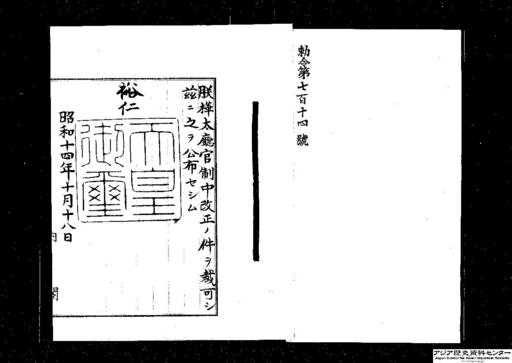 勅令第七百十四號
朕樺太廳官制中改正ノ件ヲ裁可シ
茲ニ之ヲ公布セシム
裕仁
天皇
御璽
昭和十四年十月十八日
内閣
アジア歴史資料センター
Japan Center for Asian Historical Records